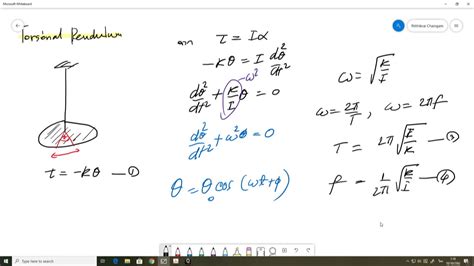 Microsoft Whiteboard
Torsional Pendulum
τ = Iα
-kθ = I d²θ/dt²
d²θ/dt² + (k/I) θ = 0
ω²
d²θ/dt² + ω²θ = 0
θ = θ₀ cos (ωt+φ)
τ = -kθ —①
ω = √(k/I)
ω = 2π/T , ω = 2πf
T = 2π√(I/k) —③
f = 1/2π √(k/I) —④
Type here to search